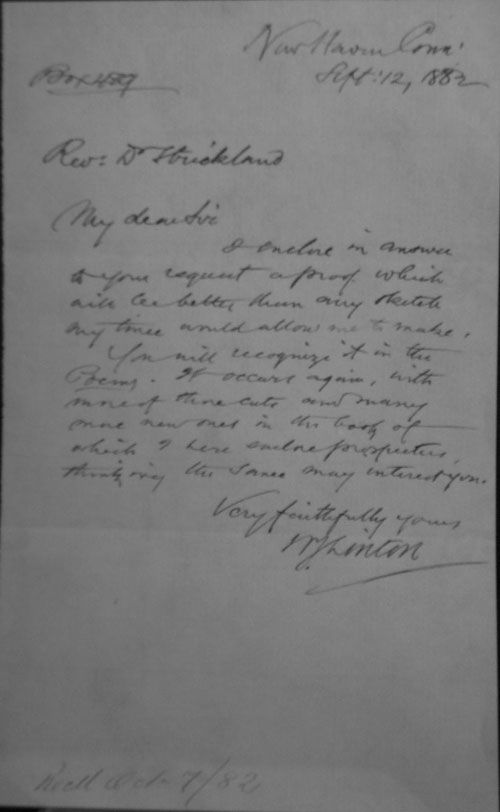 New Haven Conn:
Box 489
Sept: 12, 1882
Rev: Dr Strickland
My dear Sir
I enclose in answer
to your request a proof which
will be better than any sketch
my time would allow me to make.
You will recognize it in the
Poems. It occurs again, with
more of those cuts and many
more new ones in the book of
which I here enclose prospectus,
thinking the same may interest you.
Very faithfully yours
WJ Linton
Recd Oct 7/82